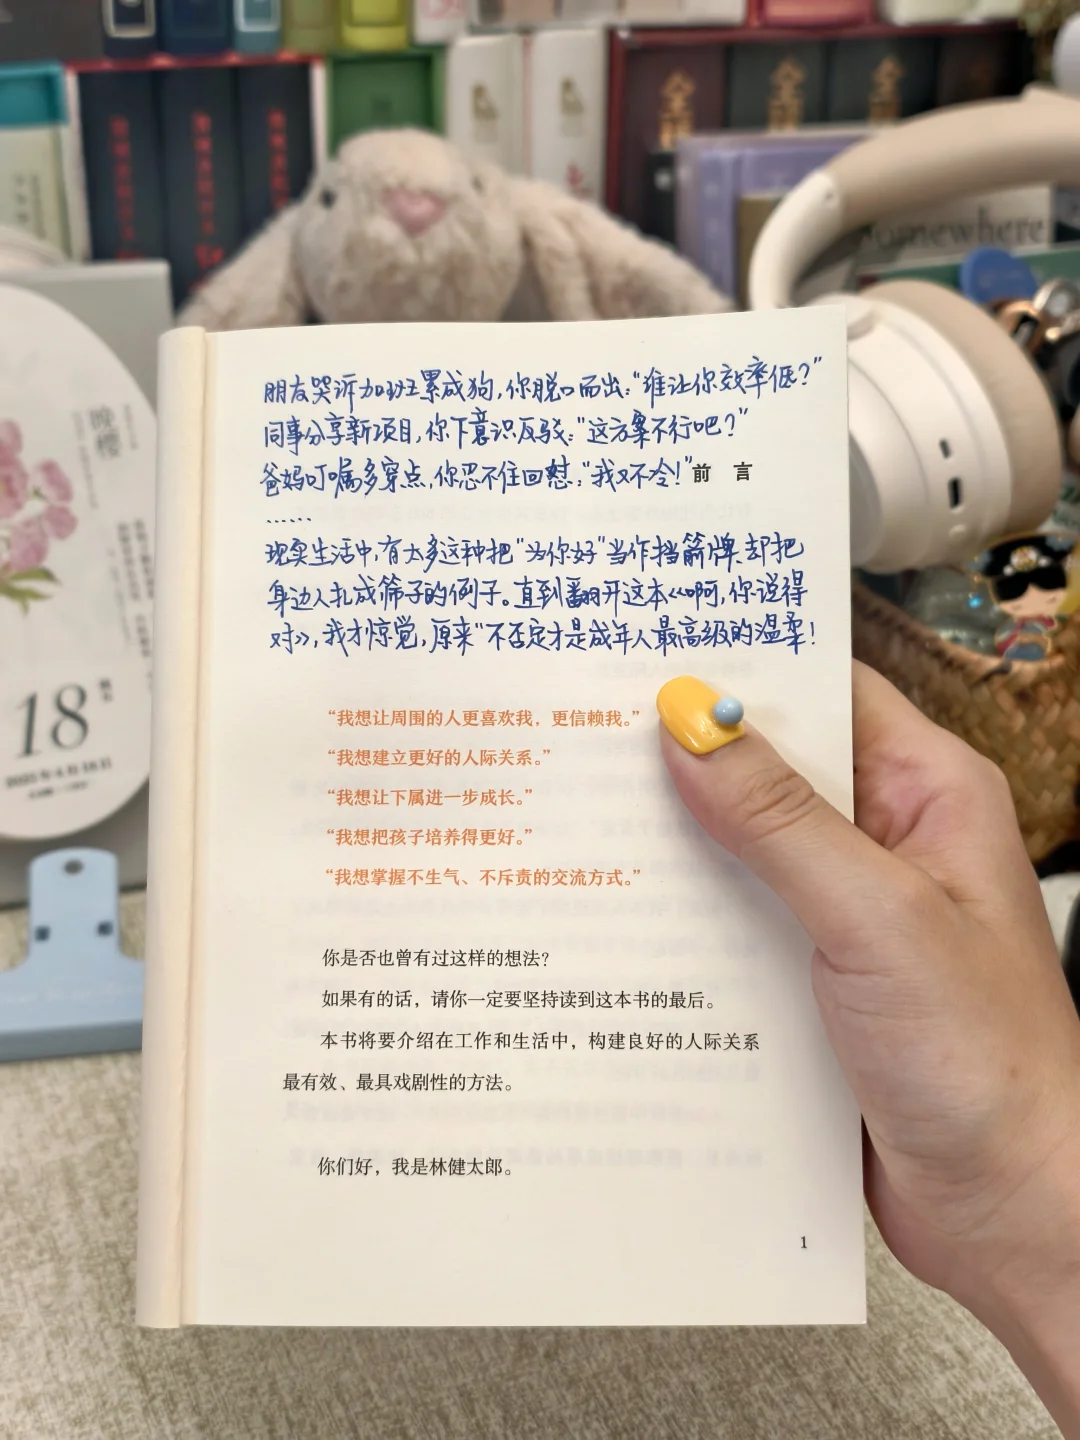 朋友哭诉加班累成狗，你脱口而出：“谁让你效率低？”
同事分享新项目，你下意识反驳：“这方案不行吧？”
爸妈叮嘱多穿点，你忍不住回怼：“我又不冷！”
前 言
……
现实生活中，有太多这种把“为你好”当作挡箭牌，却把
身边人扎成筛子的例子。直到翻开这本《啊，你说得
对》，我才惊觉，原来“不否定才是成年人最高级的温柔！
“我想让周围的人更喜欢我，更信赖我。”
“我想建立更好的人际关系。”
“我想让下属进一步成长。”
“我想把孩子培养得更好。”
“我想掌握不生气、不斥责的交流方式。”
你是否也曾有过这样的想法？
如果有的话，请你一定要坚持读到这本书的最后。
本书将要介绍在工作和生活中，构建良好的人际关系
最有效、最具戏剧性的方法。
你们好，我是林健太郎。
1
晚樱
18
Somewhere